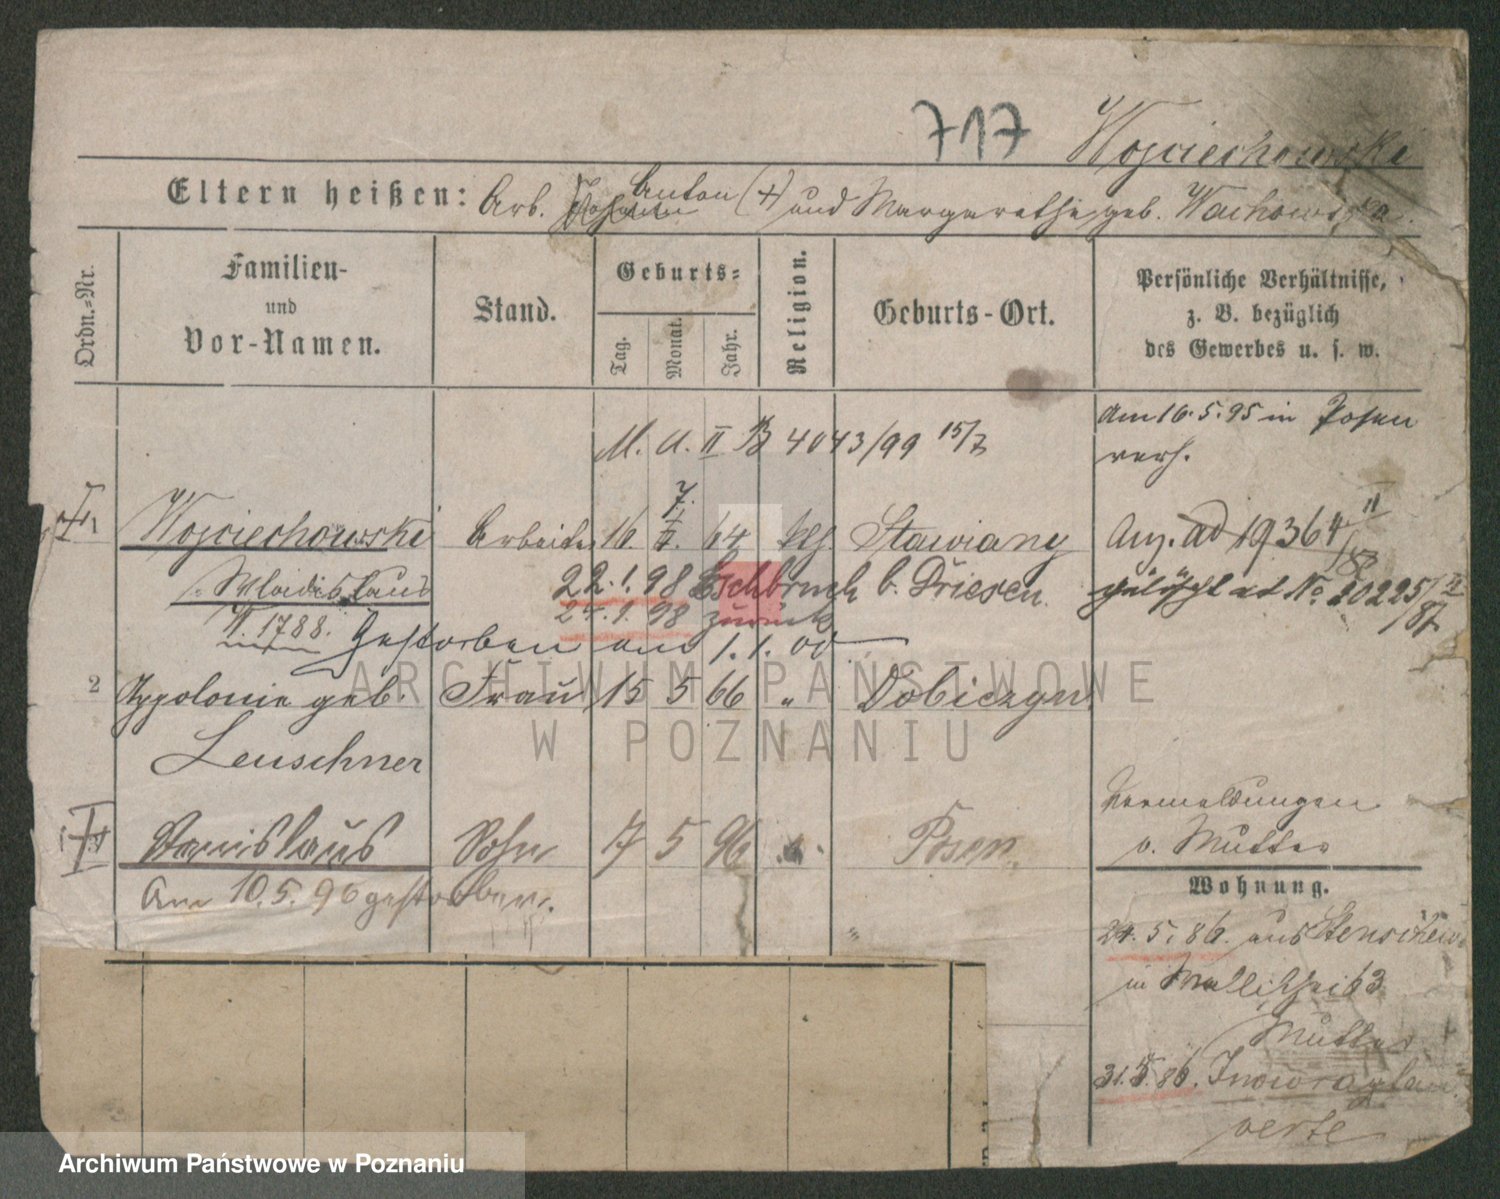 717 Wojciechowski
Eltern heißen: Arb. Johann Anton (+) und Margarethe geb. Wachowska.
Ordn.=Nr.
Familien-
und
Vor-Namen.
Stand.
Geburts=
Tag.
Monat.
Jahr.
Religion.
Geburts-Ort.
Persönliche Verhältnisse,
z. B. bezüglich
des Gewerbes u. s. w.
Am 16.5.95 in Posen
verh.
M. A. II B 4043/99 15/7
7.
1 Wojciechowski Arbeiter 16. 64 kth. Stawiany
Anz. ad 19364 11/
Wladislaus 22.1.98 Eschbruch b. Driesen.
gelöscht ad No 20225/ /87
24.1.98 zurück
V. 1788. Gestorben am 1.1.00
2 Appolonie geb. Frau 15 5 66 " Dobiezyn
Leuschner
Stanislaus Sohn 17 5 96 Posen
Am 10.5.96 gestorben.
Vermeldungen
v. Mutter
Wohnung.
24.5.86. aus Stenschewo
in Wallischei 63
Mutter
31.5.86. Inowrazlaw
verte
ARCHIWUM PAŃSTWOWE
W POZNANIU
Archiwum Państwowe w Poznaniu